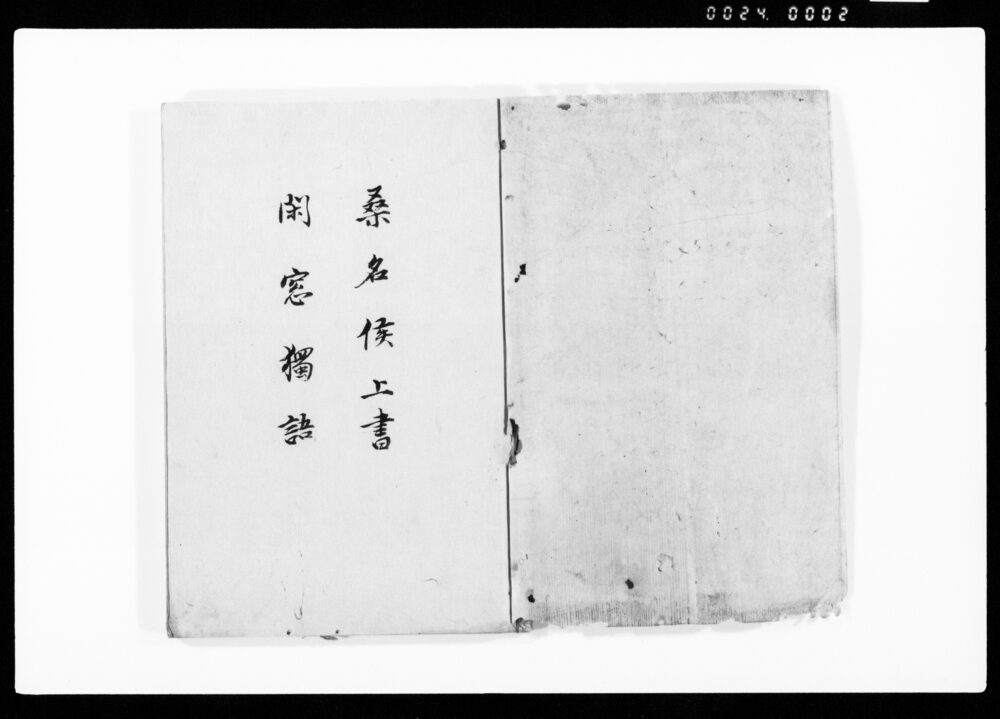 0024. 0002
桑名侯上書
閑窓獨語